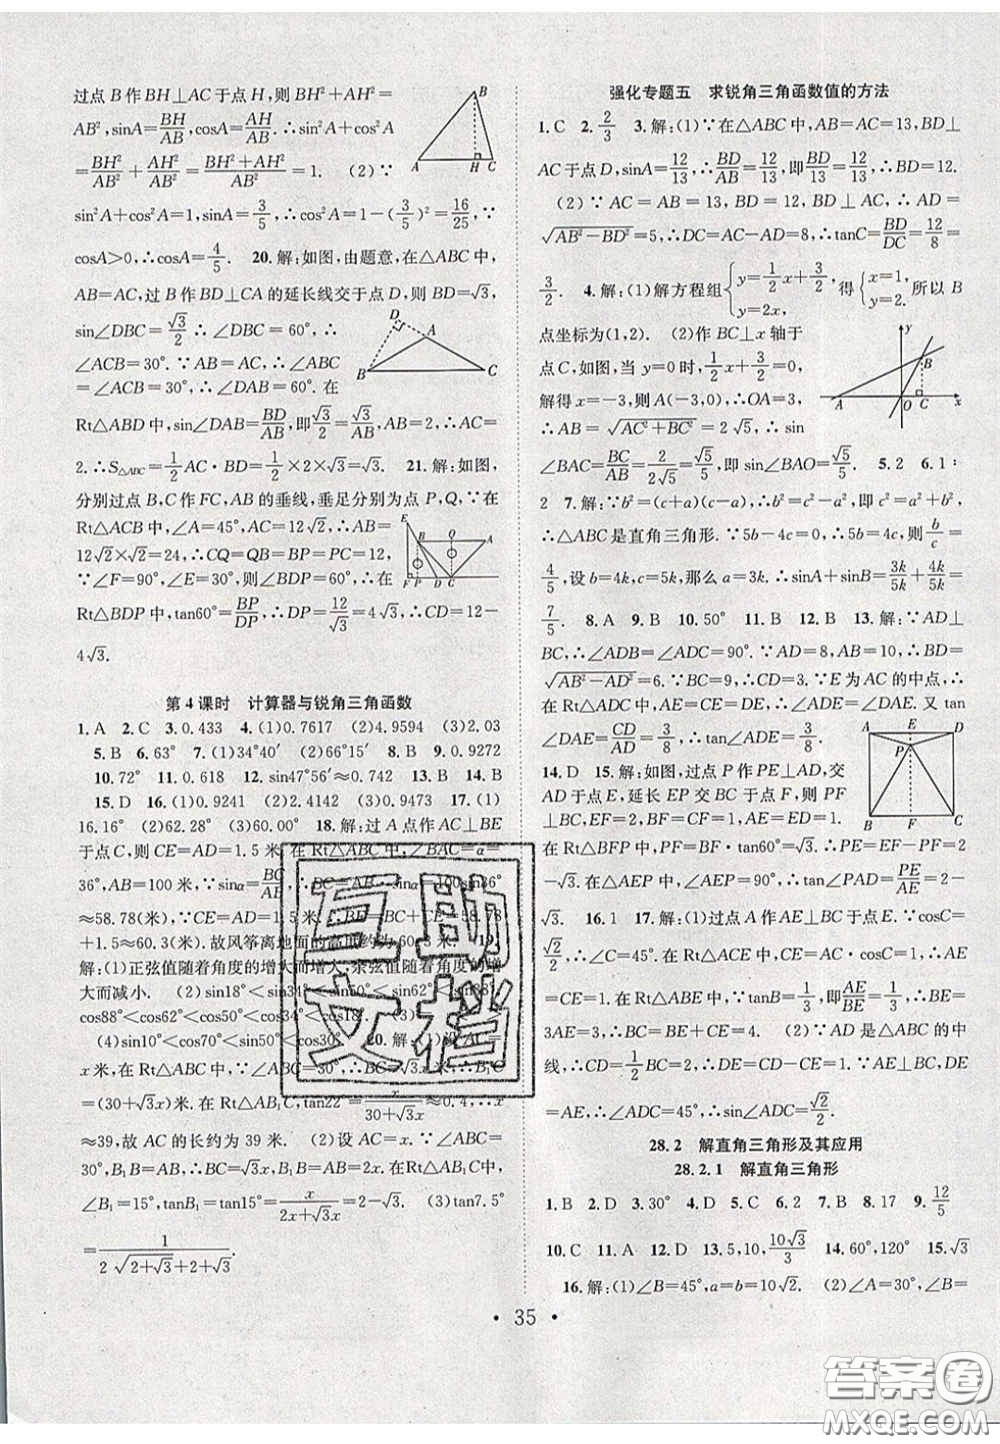 过点 B 作 BH⊥AC 于点 H,则 BH²+AH²=
AB²,sinA=BH/AB,cosA=AH/AB. ∴sin²A+cos²A
=BH²/AB²+AH²/AB²=(BH²+AH²)/AB²=1. (2)∵
sin²A+cos²A=1,sinA=3/5,∴cos²A=1-(3/5)²=16/25,∵
cosA>0,∴cosA=4/5. 20.解:如图,由题意,在△ABC 中,
AB=AC,过 B 作 BD⊥CA 的延长线交于点 D,BD=√3,
sin∠DBC=√3/2 ∴∠DBC=60°,∴
∠ACB=30°.∵AB=AC,∴∠ABC
=∠ACB=30°,∴∠DAB=60°. 在
Rt△ABD 中,sin∠DAB=BD/AB,即√3/2=√3/AB,AB=2,∴AC=
2.∴S△ABC=1/2AC·BD=1/2×2×√3=√3. 21.解:如图,
分别过点 B,C 作 FC,AB 的垂线,垂足分别为点 P,Q,∵在
Rt△ACB 中,∠A=45°,AC=12√2,∴AB=
12√2×√2=24,∴CQ=QB=BP=PC=12,
∵∠F=90°,∠E=30°,则∠BDP=60°,∴在
Rt△BDP 中,tan60°=BP/DP,∴DP=12/√3=4√3,∴CD=12-
4√3.
第 4 课时 计算器与锐角三角函数
1.A 2.C 3.0.433 4.(1)0.7617 (2)4.9594 (3)2.03
5.B 6.63° 7.(1)34°40′ (2)66°15′ 8.B 9.0.9272
10.72° 11.0.618 12.sin47°56′≈0.742 13.B 14.B
15.D 16.(1)0.9241 (2)2.4142 (3)0.9473 17.(1)
16.16° (2)62.28° (3)60.00° 18.解:过 A 点作 AC⊥BE
于点 C,则 CE=AD=1.5 米.在 Rt△ABC 中,∠BAC=α=
36°,AB=100 米,∵sinα=BC/AB,∴BC=AB·sinα=100sin36°
≈58.78(米),∵CE=AD=1.5 米,∴BE=BC+CE=58.78
+1.5≈60.3(米).故风筝离地面的高度约为 60.3 米. 19.
解:(1)正弦值随着角度的增大而增大,余弦值随着角度的增
大而减小. (2)sin18°<sin34°<sin50°<sin62°<sin88°
cos88°<cos62°<cos50°<cos34°<cos18°
(4)sin10°<cos70°<sin50°<cos30° 20.解:(1)设 AC=
x 米,在 Rt△ABC 中,∠ABC=30°,∴BC=√3x,∴B₁C
=(30+√3x)米.在 Rt△AB₁C,tan22°=x/(30+√3x)≈0.4,∴x
≈39,故 AC 的长约为 39 米. (2)设 AC=x.∵∠ABC=
30°,B₁B=AB=2x,BC=√3x.在 Rt△AB₁C 中,
∠B₁=15°,tanB₁=tan15°=x/(2x+√3x)=2-√3. (3)tan7.5°
=1/(2√(2+√3)+2+√3).
强化专题五 求锐角三角函数值的方法
1.C 2.2/3 3.解:(1)∵在△ABC 中,AB=AC=13,BD⊥
AC 于点 D,sinA=12/13=BD/AB,即BD/13=12/13,∴BD=12.
(2)∵AC=AB=13,BD=12,BD⊥AC,∴AD=
√(AB²-BD²)=5,∴DC=AC-AD=8,∴tanC=BD/DC=12/8=
3/2. 4.解:(1)解方程组{y=1/2x+3/2,y=2x, 得{x=1,y=2. 所以 B
点坐标为(1,2). (2)作 BC⊥x 轴于
点 C,如图,当 y=0 时,1/2x+3/2=0,
解得 x=-3,则 A(-3,0),∴OA=3,
∴AB=√(AC²+BC²)=2√5,∴sin
∠BAC=BC/AB=2/(2√5)=√5/5,即 sin∠BAO=√5/5. 5.2 6.1:
2 7.解:∵b²=(c+a)(c-a),∴b²=c²-a²,即 c²=a²+b²,
∴△ABC 是直角三角形.∵5b-4c=0,∴5b=4c,则b/c=
4/5,设 b=4k,c=5k,那么 a=3k.∴sinA+sinB=3k/5k+4k/5k=
7/5. 8.A 9.B 10.50° 11.B 12.B 13.解:∵AD⊥
BC,∴∠ADB=∠ADC=90°.∵AB=8,∠ABD=30°,∴
√(AB²-AD²)=4√3.∵E 为 AC 的中点,∴
在 Rt△ADC 中,AE=CE=DE,∴∠DAE=∠ADE.又 tan
∠DAE=CD/AD=3/8,∴tan∠ADE=3/8.
14.D 15.解:如图,过点 P 作 PE⊥AD,交
AD 于点 E,延长 EP 交 BC 于点 F,则 PF
⊥BC,EF=2,BF=1,∠BFP=90°,∴
在 Rt△BFP 中,PF=BF·tan60°=√3.∴PE=2
-√3.在△AEP 中,∠AEP=90°,∴=PE/AE=2-
√3. 16.1 17.解:(1)过点 A 作 AE⊥BC 于点 E.∵cosC=
√2/2,∴∠C=45°.在 Rt△ACE 中,CE=AC·cosC=1,∴AE
=CE=1.在 Rt△ABE 中,∵tanB=1/3,即AE/BE=1/3,∴BE=
3AE=3,∴BC=BE+CE=4. (2)∵AD 是△ABC 的中
线,∴CD=1/2BC=2,∴DE=CD-CE=1,∵AE⊥BC,DE
=AE,∴∠ADC=45°,∴sin∠ADC=√2/2.
28.2 解直角三角形及其应用
28.2.1 解直角三角形
1.B 2.D 3.30° 4.D 5.C 6.2 7.B 8.17 9.12/5
10.C 11.A 12.D 13.5,10,10√3/3 14.60°,120° 15.√3
16.解:(1)∠B=45°,a=b=10√2. (2)∠A=30°,∠B=
• 35 •
互助
文档
答案圈
MXQE.COM